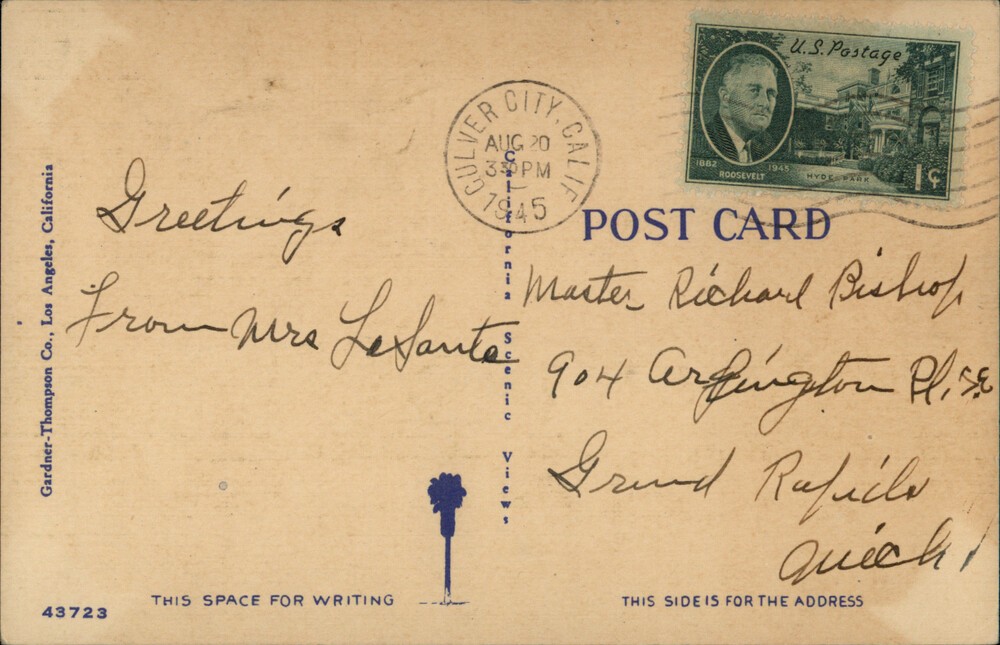 U.S. Postage
1882
1945
ROOSEVELT
HYDE PARK
1¢
CULVER CITY, CALIF.
AUG 20
330 PM
1945
POST CARD
Gardner-Thompson Co., Los Angeles, California
California Scenic Views
Greetings
From Mrs LeSante
Master Richard Bishop
904 Arlington Pl, S.E
Grand Rapids
Mich
43723
THIS SPACE FOR WRITING
THIS SIDE IS FOR THE ADDRESS